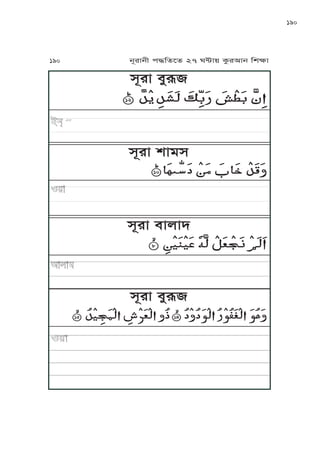 ১৯০
১৯০ নূরানী পদ্ধতিতে ২৭ ঘন্টায় কুরআন শিক্ষা
সূরা বুরূজ
اِنَّ بَطْشَ رَبِّكَ لَشَدِيْدٌ ۝
সূরা শামস
وَقَدْ خَابَ مَنْ دَسّٰىهَا ۝
ওয়া
সূরা বালাদ
اَلَمْ نَجْعَلْ لَّهٗ عَيْنَيْنِ ۝
আলাম
সূরা বুরূজ
وَهُوَ الْغَفُوْرُ الْوَدُوْدُ ۝ ذُو الْعَرْشِ الْمَجِيْدُ ۝
ওয়া